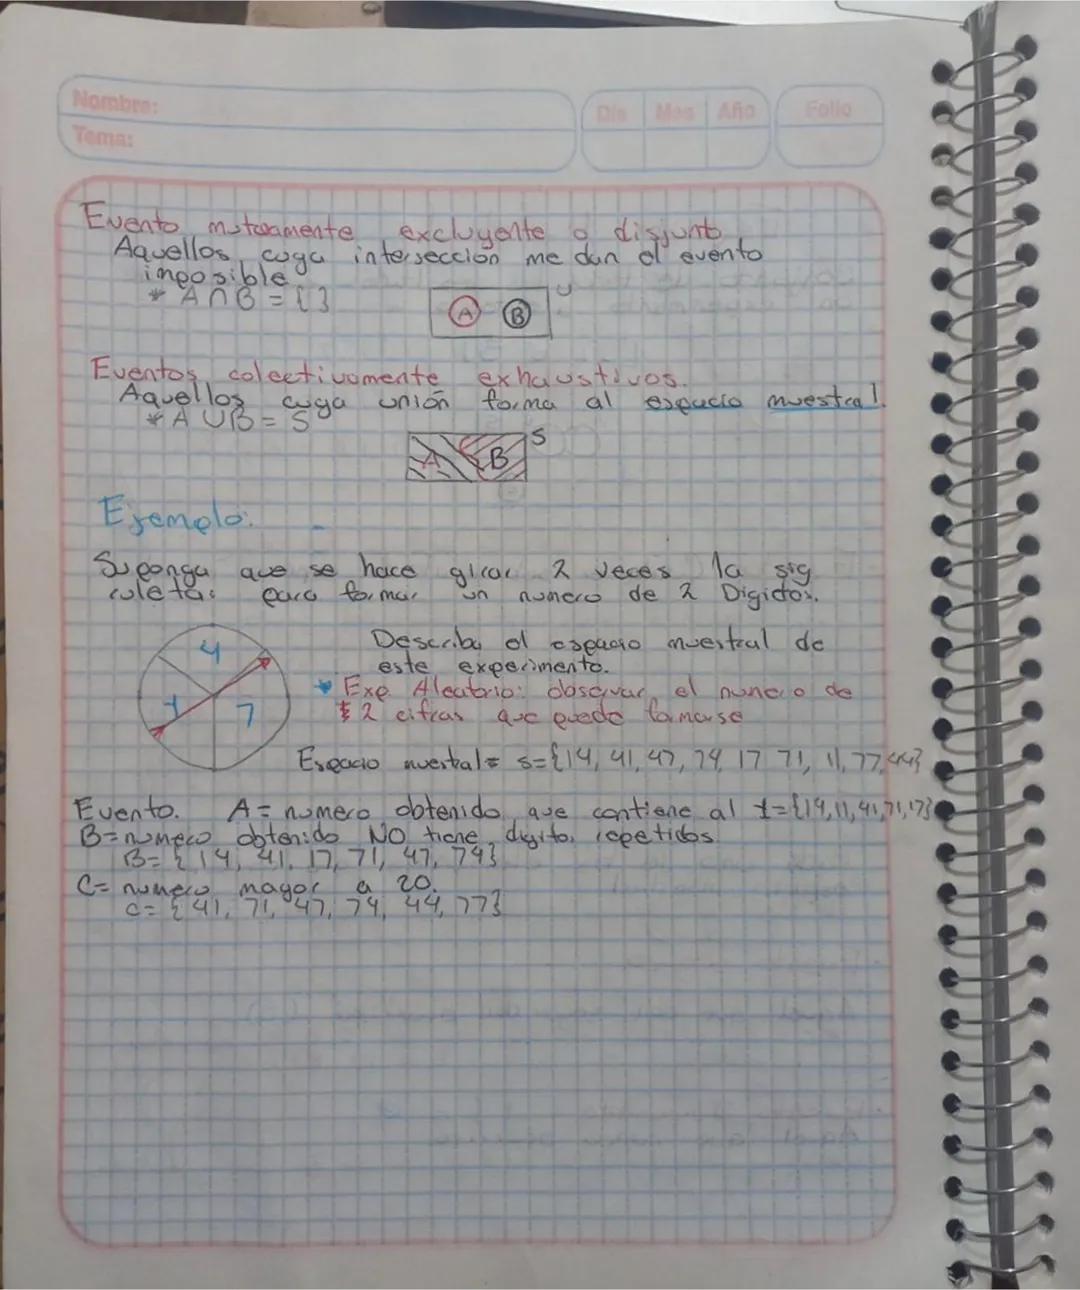 Nombre:
Tema:
Día Mes Año Folio
Evento mutuamente excluyente o disjunto
Aquellos cuya intersección me dan el evento
imposible
* A ∩ B = { }
U
A B
Eventos colectivamente exhaustivos.
Aquellos cuya unión forma al espacio muestral
* A U B = S
S
A B
Ejemplo:
Suponga que se hace girar 2 veces la sig
ruleta: para formar un numero de 2 Digitos.
Describa el espacio muestral de
este experimento.
* Exp. Aleatorio: observar el numero de
2 cifras que puede formarse
4
1
7
Espacio muestral = S={14, 41, 47, 74, 17 71, 11, 77, 44}
Evento. A = numero obtenido que contiene al 1={14,11,41,71,17}
B= numero obtenido NO tiene digito repetidos
B= {14, 41, 17, 71, 47, 74}
C= numero mayor a 20.
C= {41, 71, 47, 74, 44, 77}